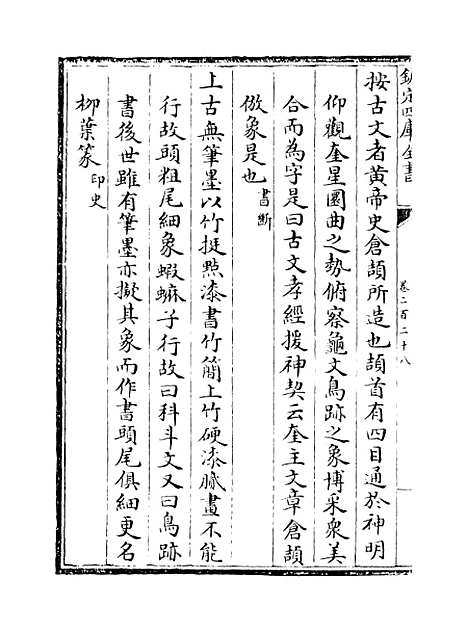 欽定四庫全書
卷二百二十八
按古文者黃帝史倉頡所造也頡首有四目通於神明
仰觀奎星圜曲之勢俯察龜文鳥跡之象博采衆美
合而為字是曰古文孝經援神契云奎主文章倉頡
倣象是也書斷
上古無筆墨以竹挺㸃漆書竹簡上竹硬漆膩畫不能
行故頭粗尾細象蝦蟆子行故曰科斗文又曰鳥跡
書後世雖有筆墨亦擬其象而作書頭尾俱細更名
柳葉篆印史